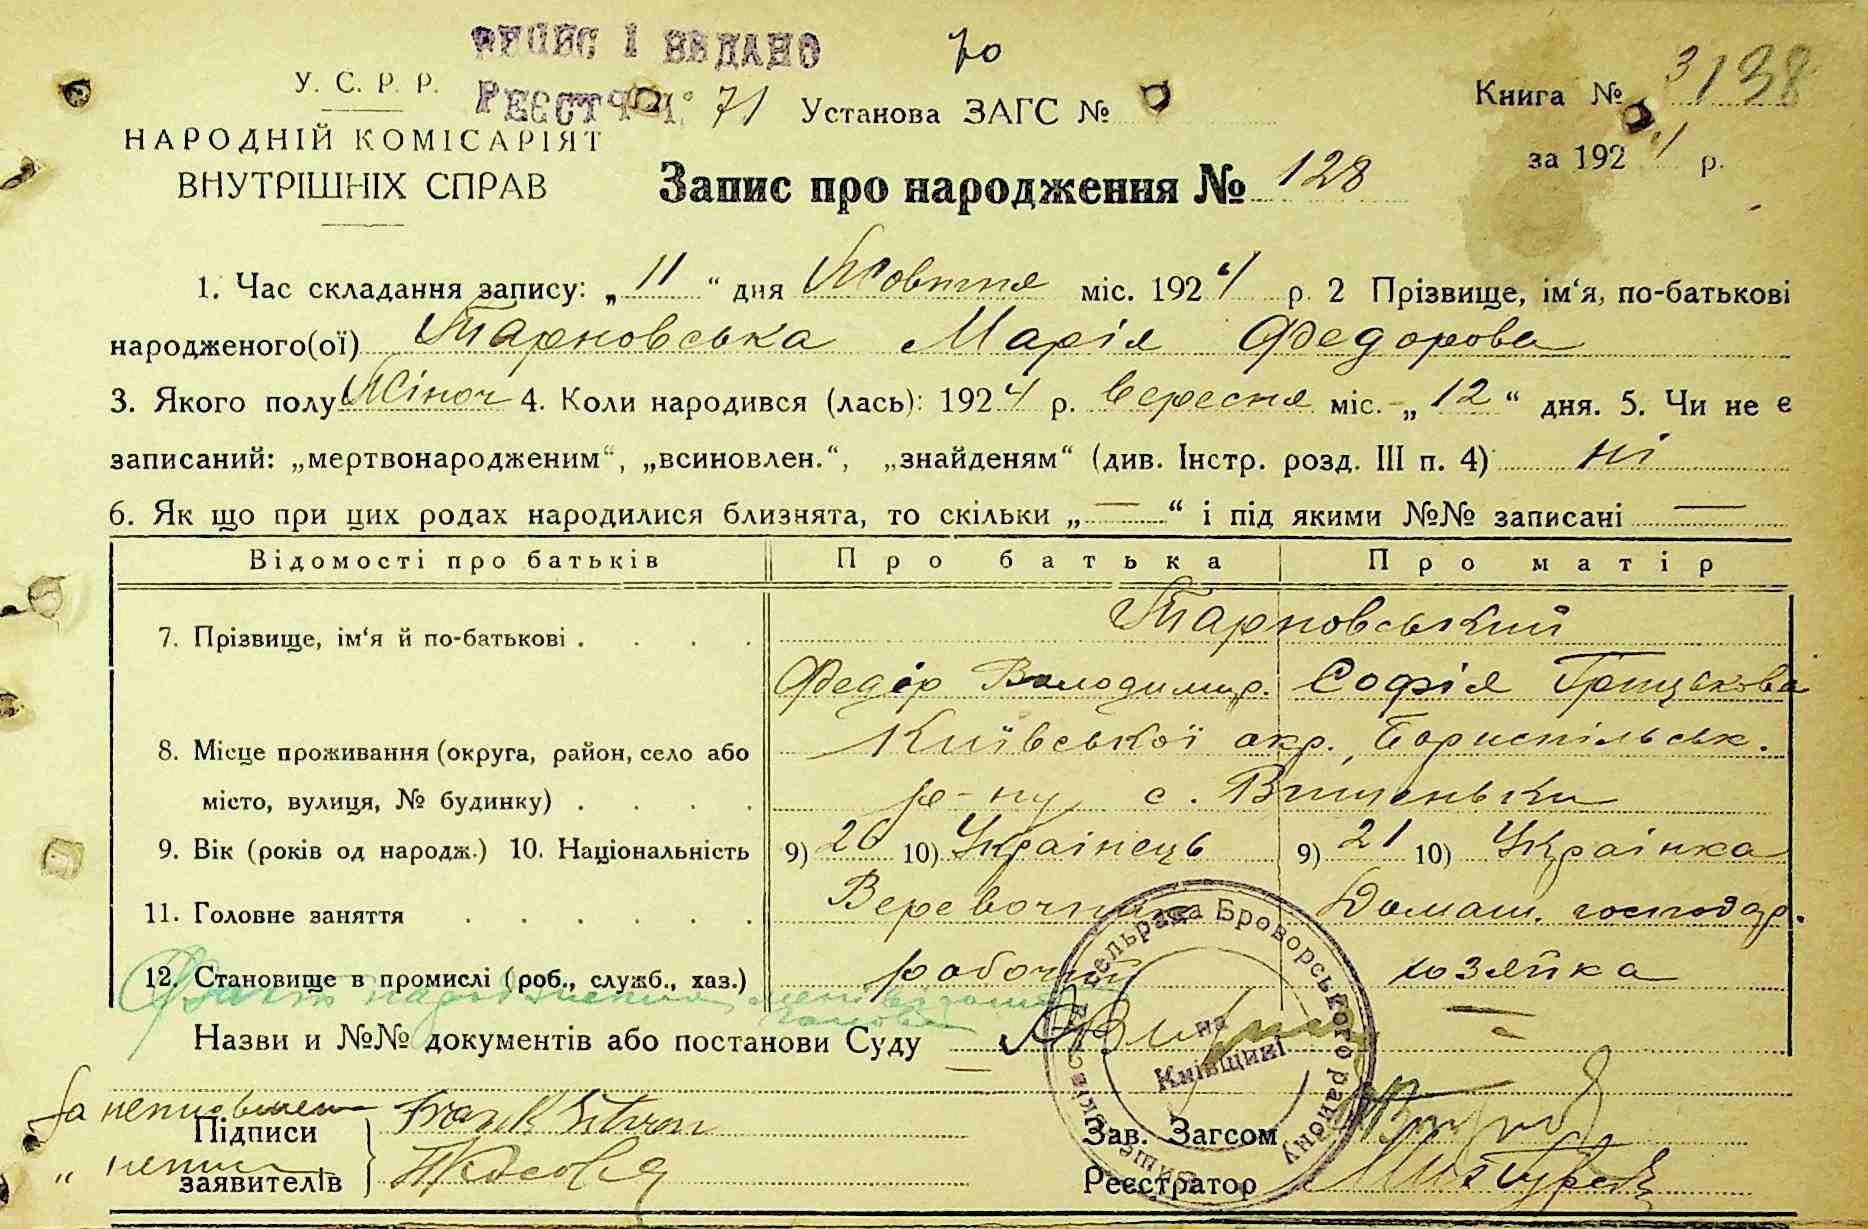 ВИПИС І ВИДАНО
РЕЄСТР № 71
У. С. Р. Р.
НАРОДНІЙ КОМІСАРІЯТ
ВНУТРІШНІХ СПРАВ
Установа ЗАГС №
Книга № 3 138
за 1924 р.
Запис про народження № 128
1. Час складання запису: „11“ дня Жовтня міс. 1924 р. 2 Прізвище, ім‘я, по-батькові
народженого(ої) Тарновська Марія Федорова
3. Якого полу Жіноч 4. Коли народився (лась): 1924 р. вересня міс. „12“ дня. 5. Чи не є
записаний: „мертвонародженим“, „всиновлен.“, „знайденям“ (див. Інстр. розд. III п. 4) ні
6. Як що при цих родах народилися близнята, то скільки „—“ і під якими №№ записані —
Відомості про батьків Про батька Про матір
7. Прізвище, ім‘я й по-батькові . . . . Тарновський
Федір Володимир. Софія Грицькова
8. Місце проживання (округа, район, село або Київської окр. Бориспільськ.
місто, вулиця, № будинку) . . . . р-ну с. Вишеньки
9. Вік (років од народж.) 10. Національність 9) 20 10) Українець 9) 21 10) Українка
11. Головне заняття . . . . . . Веревочник Домаш. господар.
12. Становище в промислі (роб., служб., хаз.) рабочий хозяйка
Назви и №№ документів або постанови Суду —
За неписьмен
Підписи
„ непис
заявителів
Зав. Загсом
Реєстратор
сельрада Броворського району
на
Київщині